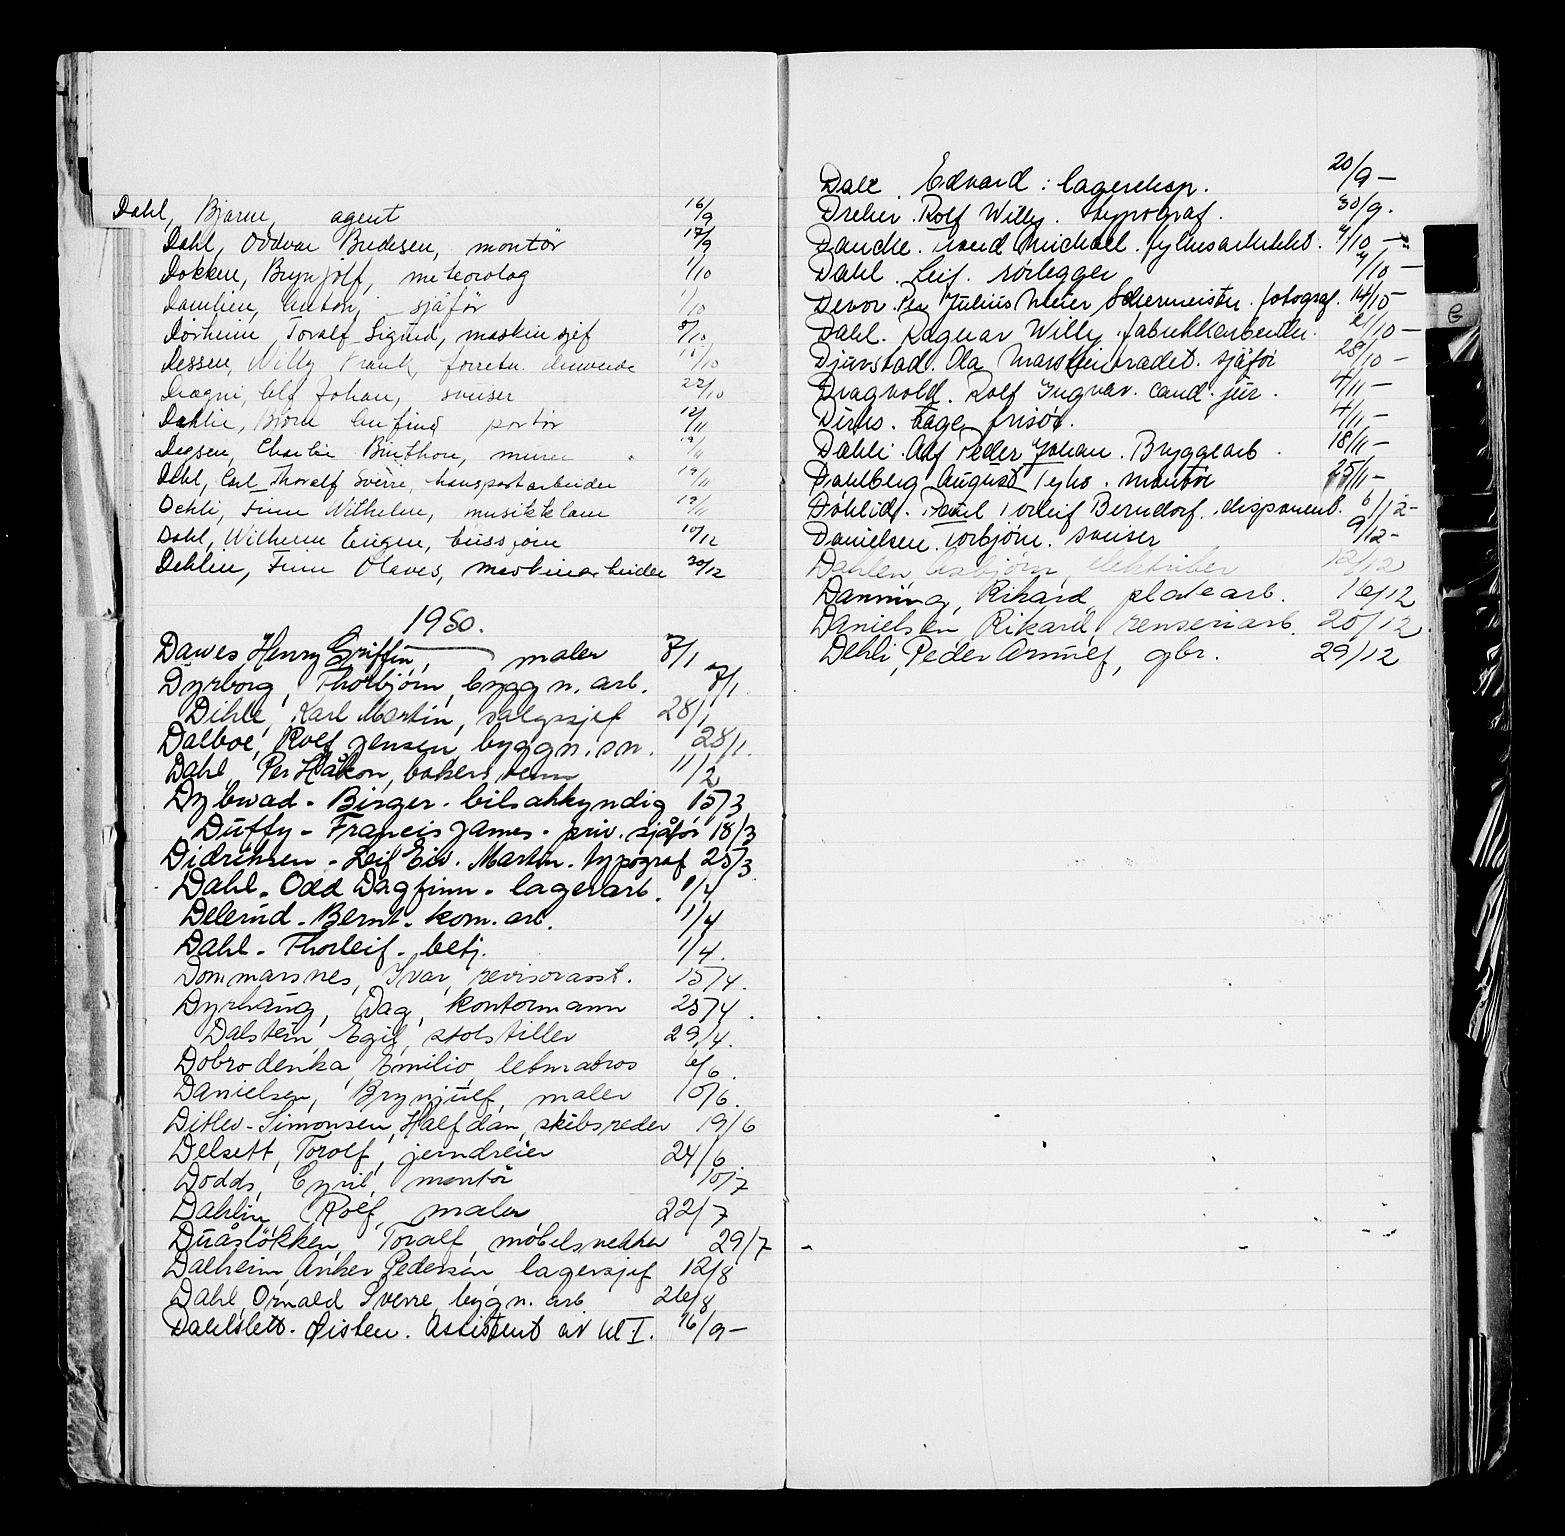 Dahl, Bjarne, agent 16/9
Dahl, Oddvar Bredesen, montör 17/9
Dokken, Brynjolf, meteorolog 1/10
Damlien, Anton, sjåför 1/10
Dörheim, Toralf Sigurd, maskinsjef 8/10
Dessen, Willy Frank, forretn. drivende 15/10
Drægni, Johan, snekker 22/10
Dahlin, Björn Arnfind portör 12/11
Degsen, Charlie Binthon, murer
Dahl, Carl Thoralf Sverre, transportarbeider 19/11
Dehli, Finn Wilhelm, musikkklaner 19/11
Dahl, Wilhelm Eugen, bussjåför 10/12
Dehlin, Finn Olaves, maskinarbeider 20/12
1950.
Dawes Henry Griffin, maler 7/1
Dyrborg, Thorbjörn, byggn. arb. 7/1
Dihle, Karl Martin, salgssjef 28/1
Dalboe, Rolf Jensen, byggn. sn. 28/1.
Dahl, Per Håkon, bakersvenn 11/2
Dybwad - Birger - bilsakkyndig 15/3
Duffy - Francis James - priv. sjåför 18/3
Didriksen - Leif Eiv. Martin - typograf 25/3
Dahl - Odd Dagfinn - lagerarb. 1/4
Delerud - Bernt - kom. arb. 1/4
Dahl - Thorleif - betj. 1/4.
Dommarsnes, Ivar, revisorasst. 15/4.
Dyrhaug, Dag, kontormann 25/4.
Dalstein Egil, stolstiller 29/4.
Dobrodenka, Emilio, letmatros 6/6.
Danielsen, Brynjulf, maler 10/6.
Ditlev-Simonsen, Halfdan, skibsreder 19/6
Delsett, Torolf, jerndreier 24/6
Dodds, Cyril, montör 10/7
Dahlin, Rolf, maler 22/7
Duåslökken, Toralf, möbelsnekker 29/7
Dalheim, Anker Pedersen, lagersjef 12/8
Dahl, Ornald Sverre, bygn. arb. 26/8
Dahlslett. Öisten. Assistent av kl I. 16/9 -
Dale. Edvard: lagereksp. 20/9 -
Dreier. Rolf Willy. typograf. 30/9.
Dancke. Trond Michael. fylkesarkitekt. 4/10 -
Dahl. Leif. rörlegger 7/10 -
Devor. Per Julius Meier Schermeister. fotograf. 14/10 -
Dahl. Ragnar Willy. fabrikkarbeider. 21/10 -
Djuvstad. Ola Marsteinvadet. sjåför 28/10 -
Dragvold. Rolf Ingvar. cand. jur. 4/11 -
Dirks. Aage frisör. 4/11 -
Dahli. Alf Peder Johan. Bryggearb. 18/11 -
Dahlberg August Tyko. montör 25/11 -
Döhlid. Paul Torleif Berndorf. disponent. 6/12 -
Danielsen. Torbjörn. snekker 9/12 -
Dahlen, Asbjörn, elektriker 12/12
Danning, Rikard, platearb. 16/12
Danielsen, Rikard, renseriarb. 20/12
Dehli, Peder Arnulf, gbr. 29/12